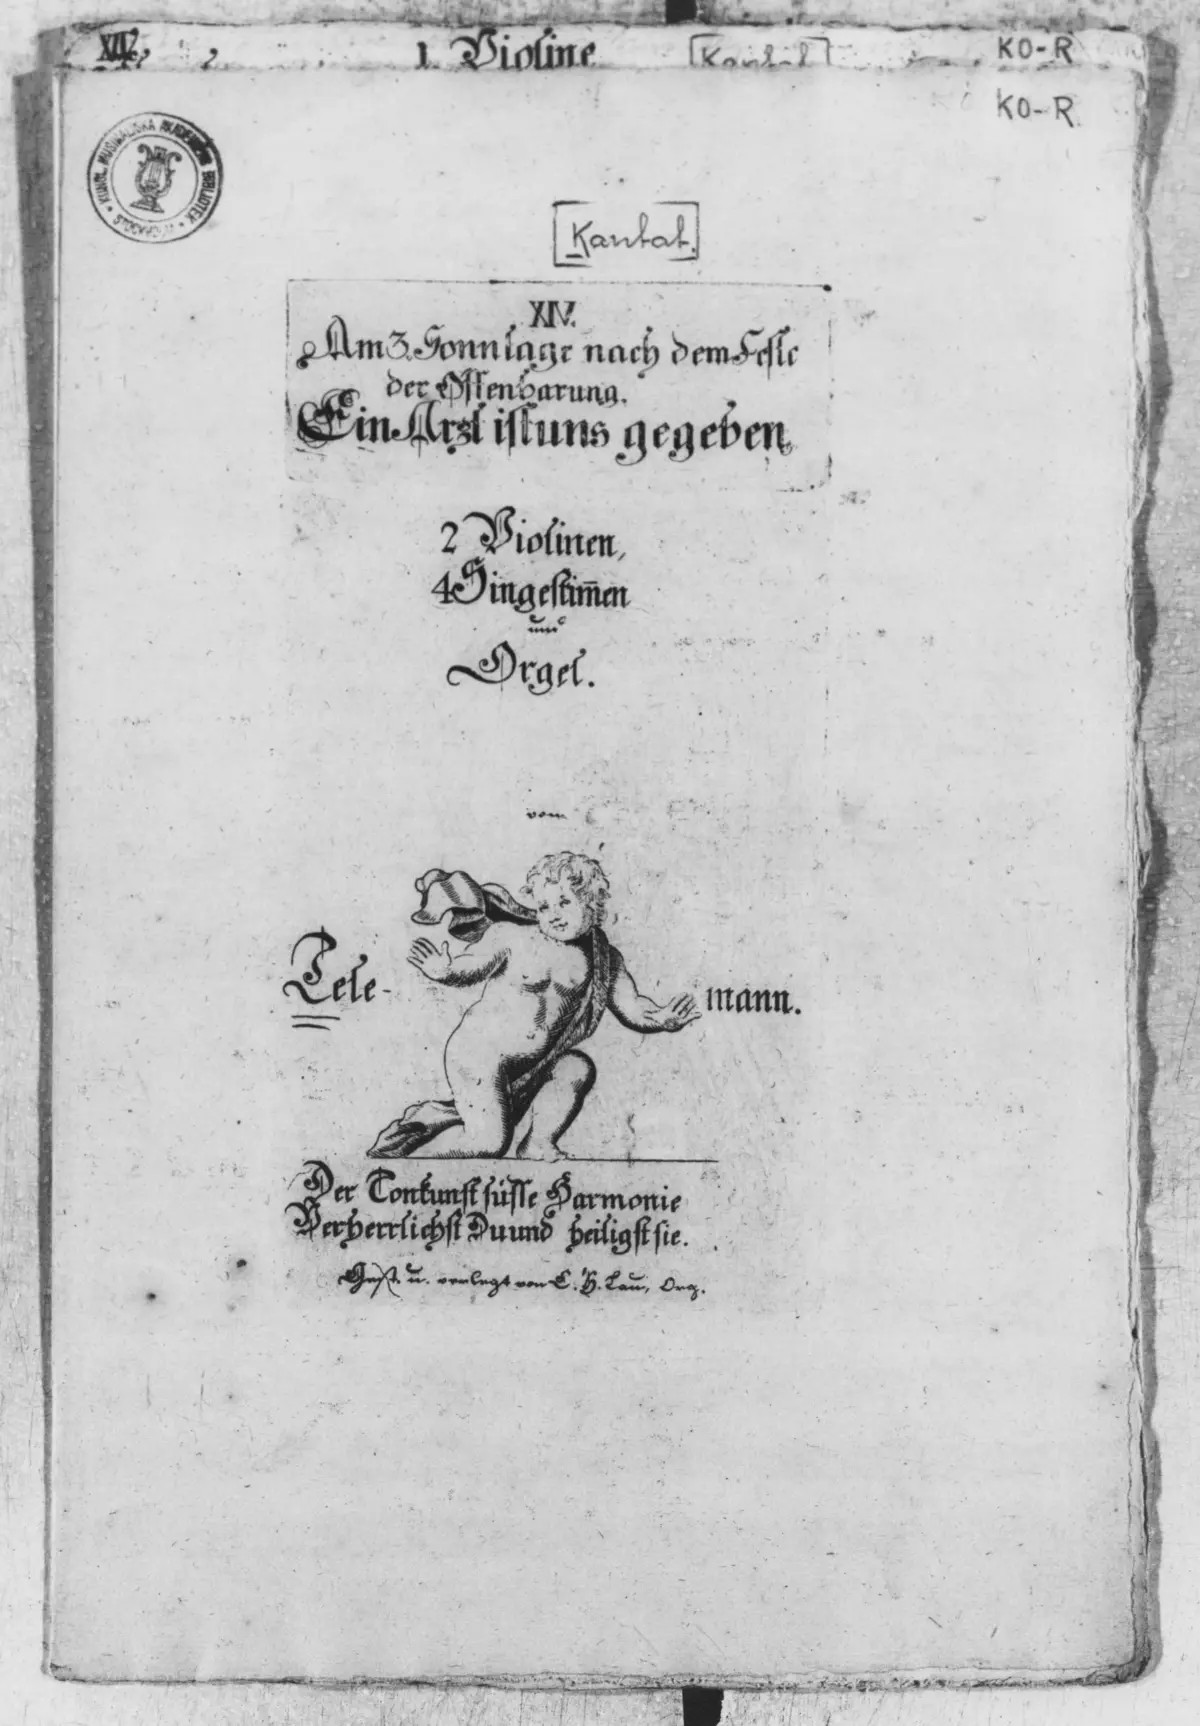 XIV.
1. Violine
[Kantat]
KO-R
KO-R
KUNGL. MUSIKALISKA AKADEMIENS BIBLIOTEK
[Kantat.]
XIV.
Am 3. Sonntage nach dem Feste
der Offenbarung.
Ein Arzt ist uns gegeben
2 Violinen,
4 Singestim̄en
und
Orgel.
vom
Tele-
mann.
Der Tonkunst süsse Harmonie
Verherrlichst Du und heiligst sie.
Gest. u. verlegt von C. H. Lau, Org.